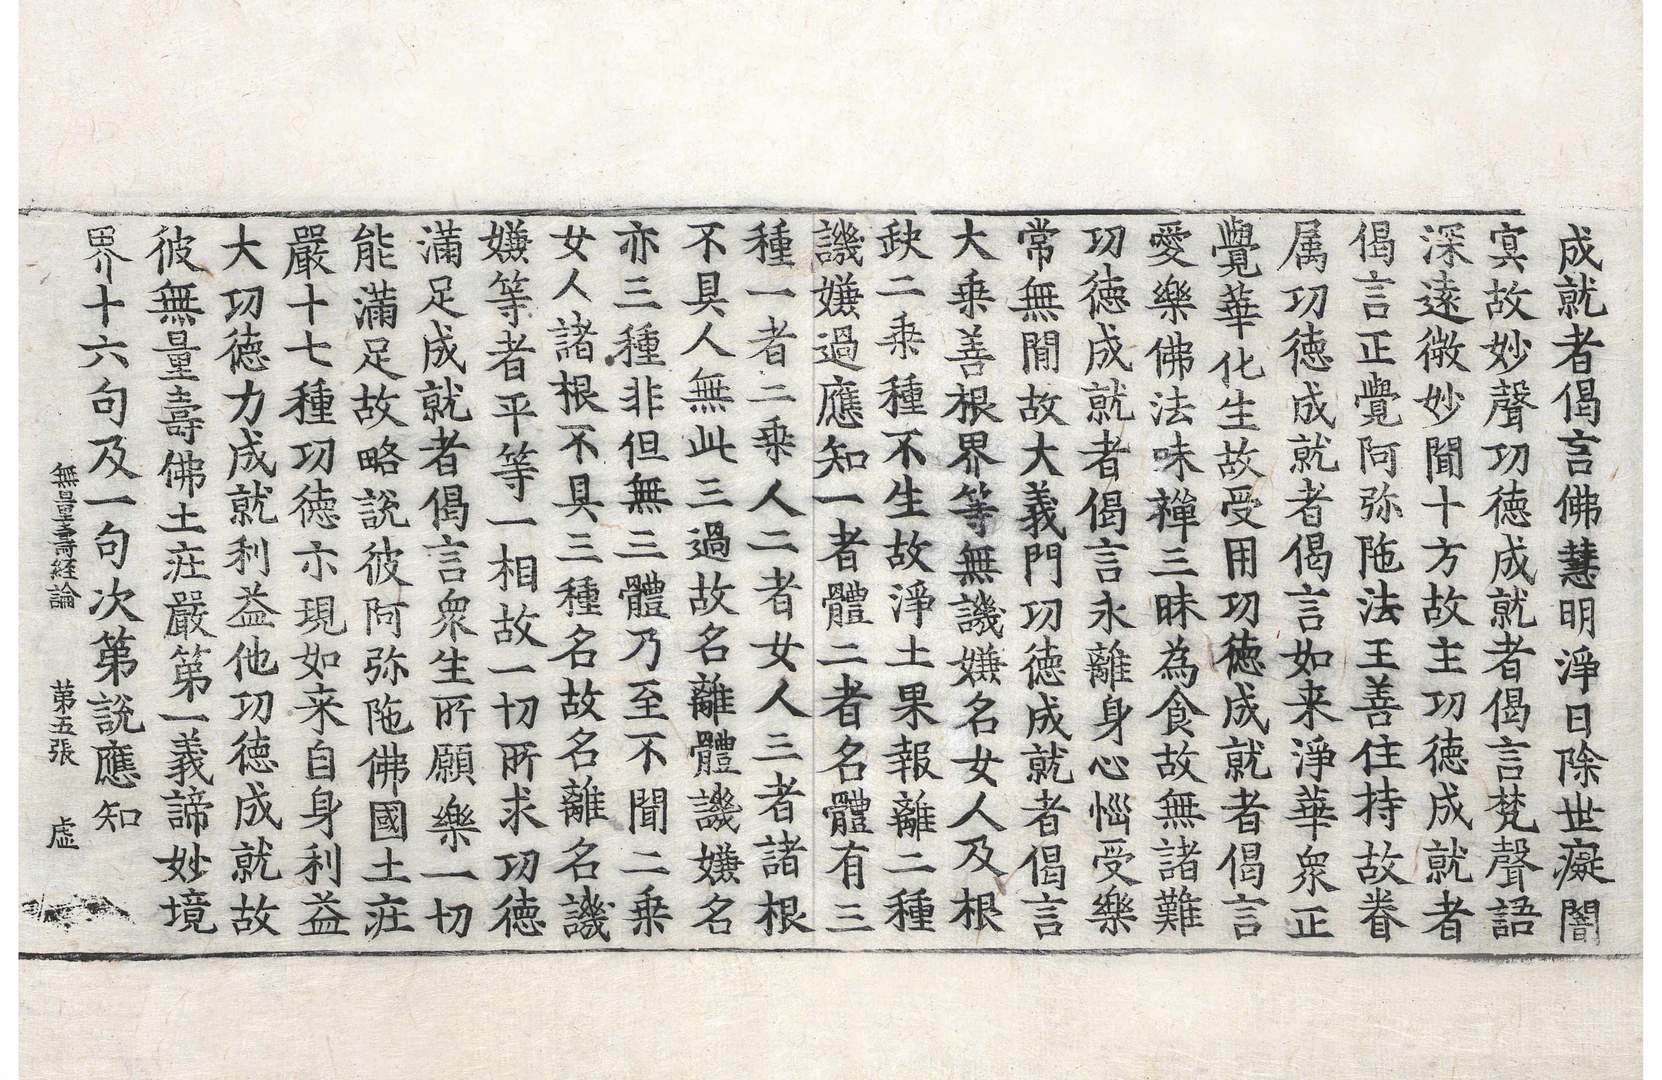 成就者偈言佛慧明淨日除世癡闇
冥故妙聲功德成就者偈言梵聲語
深遠微妙聞十方故主功德成就者
偈言正覺阿弥陁法王善住持故眷
属功德成就者偈言如来淨華衆正
覺華化生故受用功德成就者偈言
愛樂佛法味禪三昧為食故無諸難
功德成就者偈言永離身心惱受樂
常無間故大義門功德成就者偈言
大乗善根界等無譏嫌名女人及根
缺二乗種不生故淨土果報離二種
譏嫌過應知一者體二者名體有三
種一者二乗人二者女人三者諸根
不具人無此三過故名離體譏嫌名
亦三種非但無三體乃至不聞二乗
女人諸根不具三種名故名離名譏
嫌等者平等一相故一切所求功德
滿足成就者偈言衆生所願樂一切
能滿足故略說彼阿弥陁佛國土莊
嚴十七種功德示現如来自身利益
大功德力成就利益他功德成就故
彼無量壽佛土莊嚴第一義諦妙境
界十六句及一句次第說應知
無量壽経論　第五張　虛